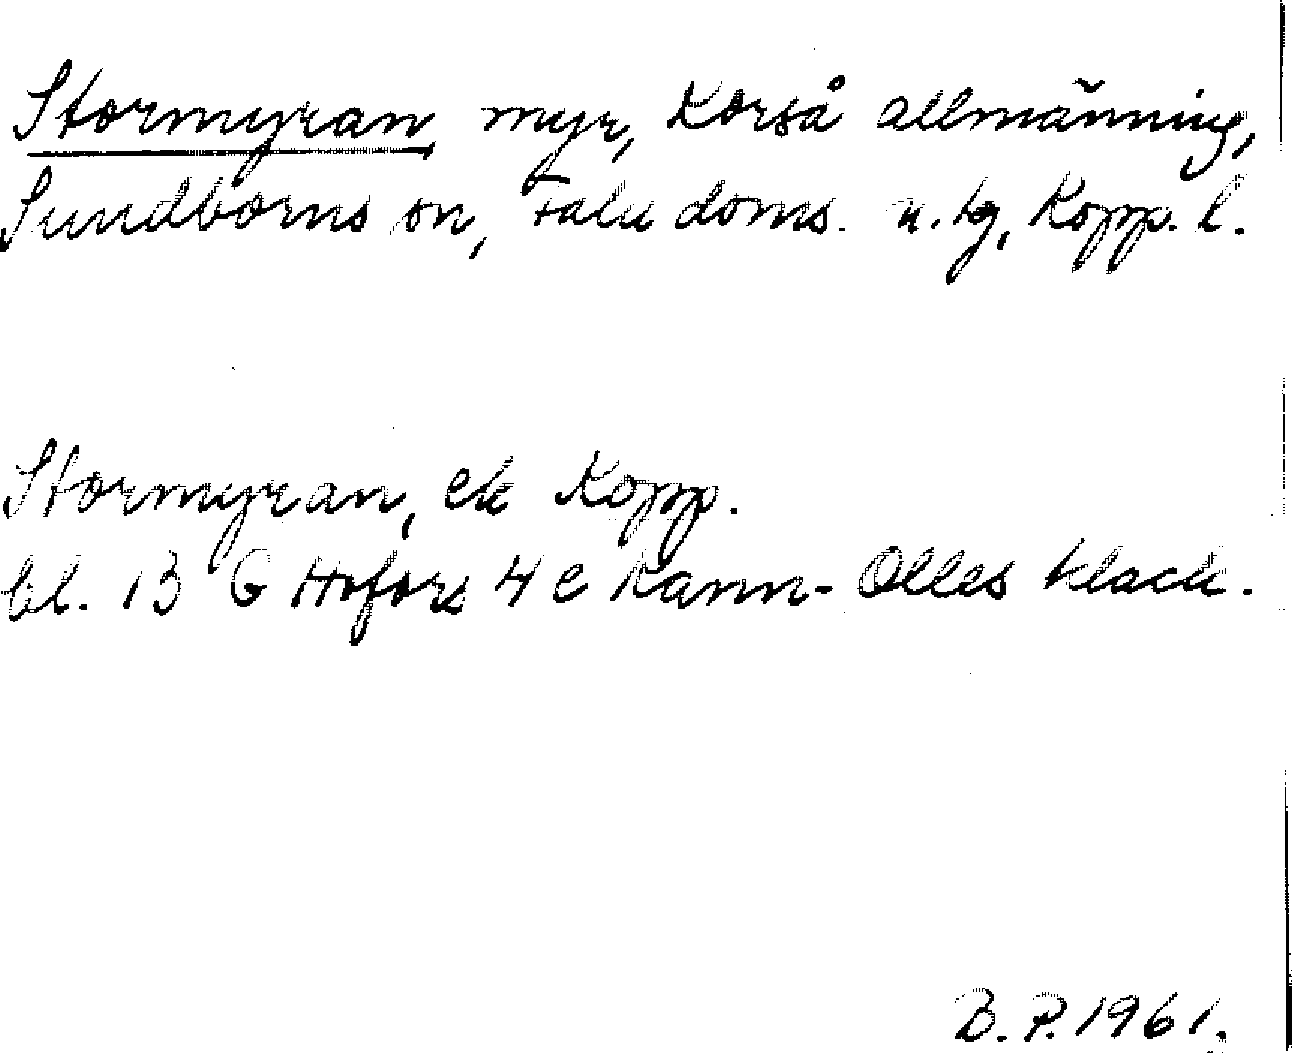 Stormyran, myr, Korså allmänning,
Sundborns sn, Falu doms. n. tg, Kopp. l.
Stormyran, ek Kopp.
bl. 13 G Hofors 4 e Karm-Olles klack.
B. P. 1961.